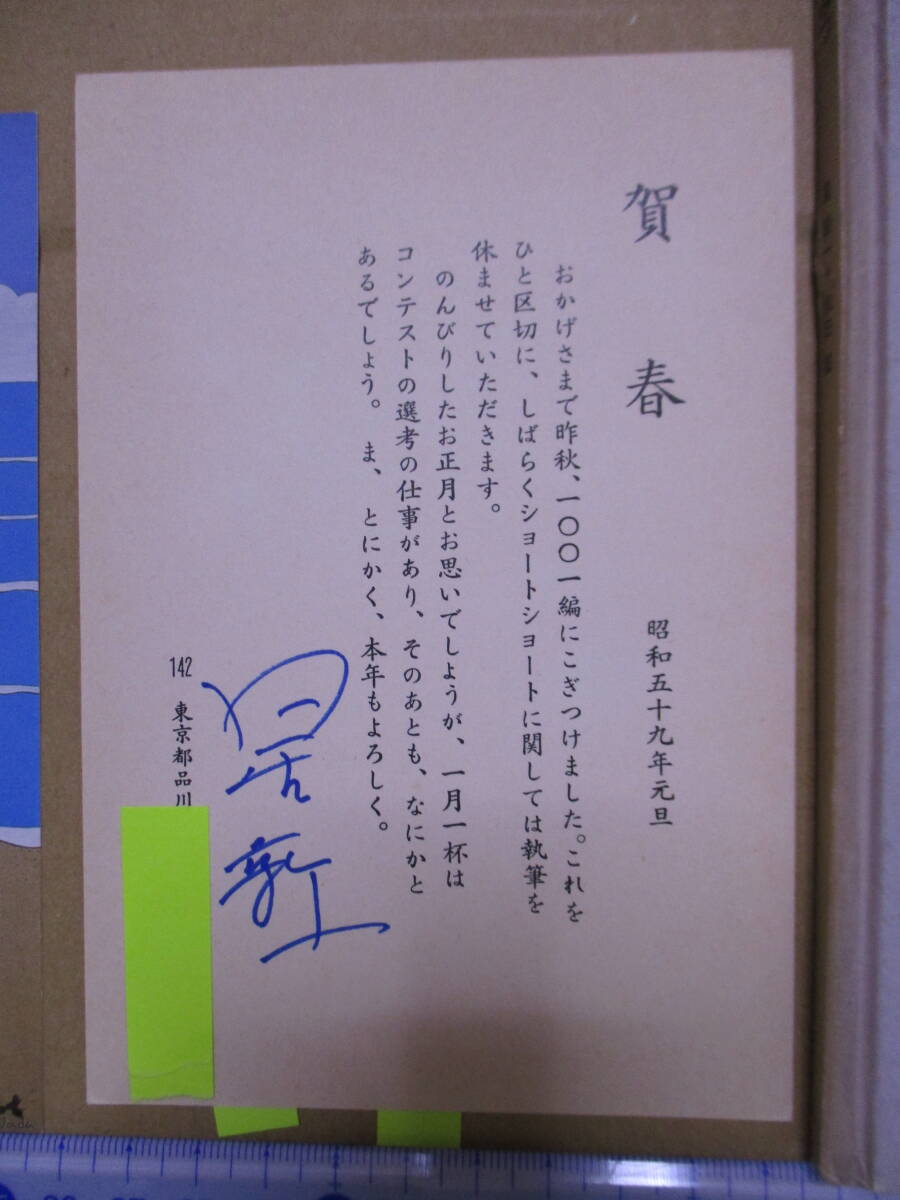 賀春
昭和五十九年元旦
おかげさまで昨秋、一〇〇一編にこぎつけました。これを
ひと区切に、しばらくショートショートに関しては執筆を
休ませていただきます。
のんびりしたお正月とお思いでしようが、一月一杯は
コンテストの選考の仕事があり、そのあとも、なにかと
あるでしょう。ま、とにかく、本年もよろしく。
星新一
142 東京都品川